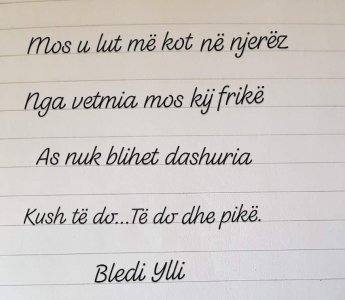 Mos u lut më kot në njerëz
Nga vetmia mos kij frikë
As nuk blihet dashuria
Kush të do...Të do dhe pikë.
Bledi Ylli